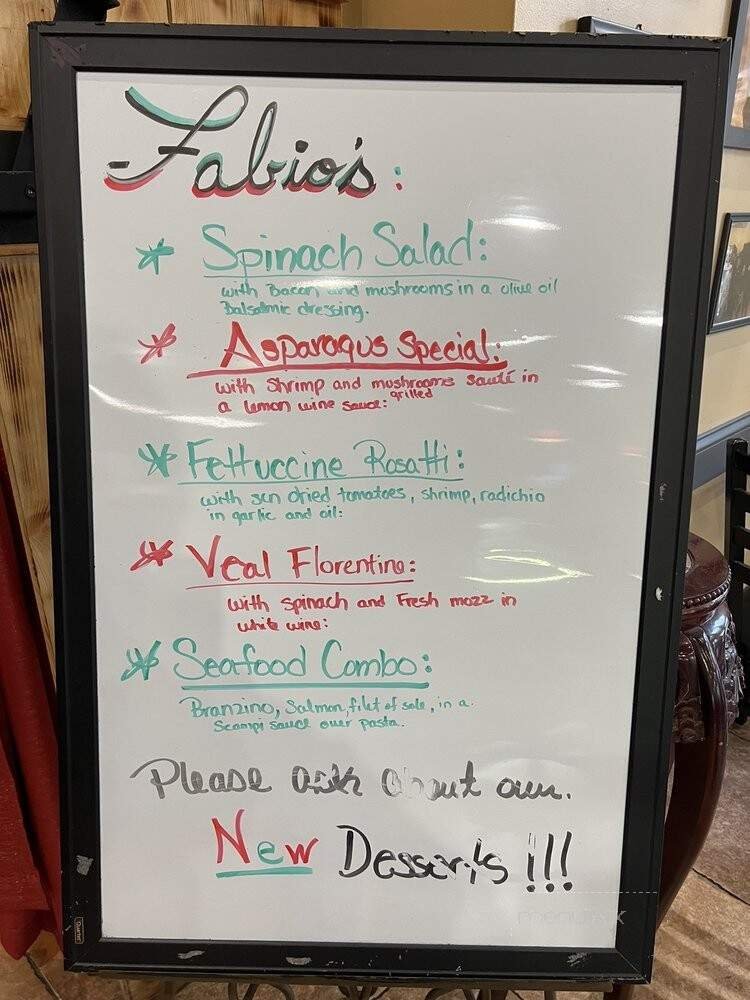 Fabio's:
* Spinach Salad:
with Bacon and mushrooms in a olive oil
Balsalmic dressing.
* Asparagus Special:
with Shrimp and mushrooms sauté in
a lemon wine sauce: grilled
* Fettuccine Rosatti:
with sun dried tomatoes, shrimp, radichio
in garlic and oil:
* Veal Florentino:
with spinach and Fresh mozz in
white wine:
* Seafood Combo:
Branzino, Salmon, filet of sole, in a
Scampi sauce over pasta.
Please ask about our.
New Desserts !!!
Quartet